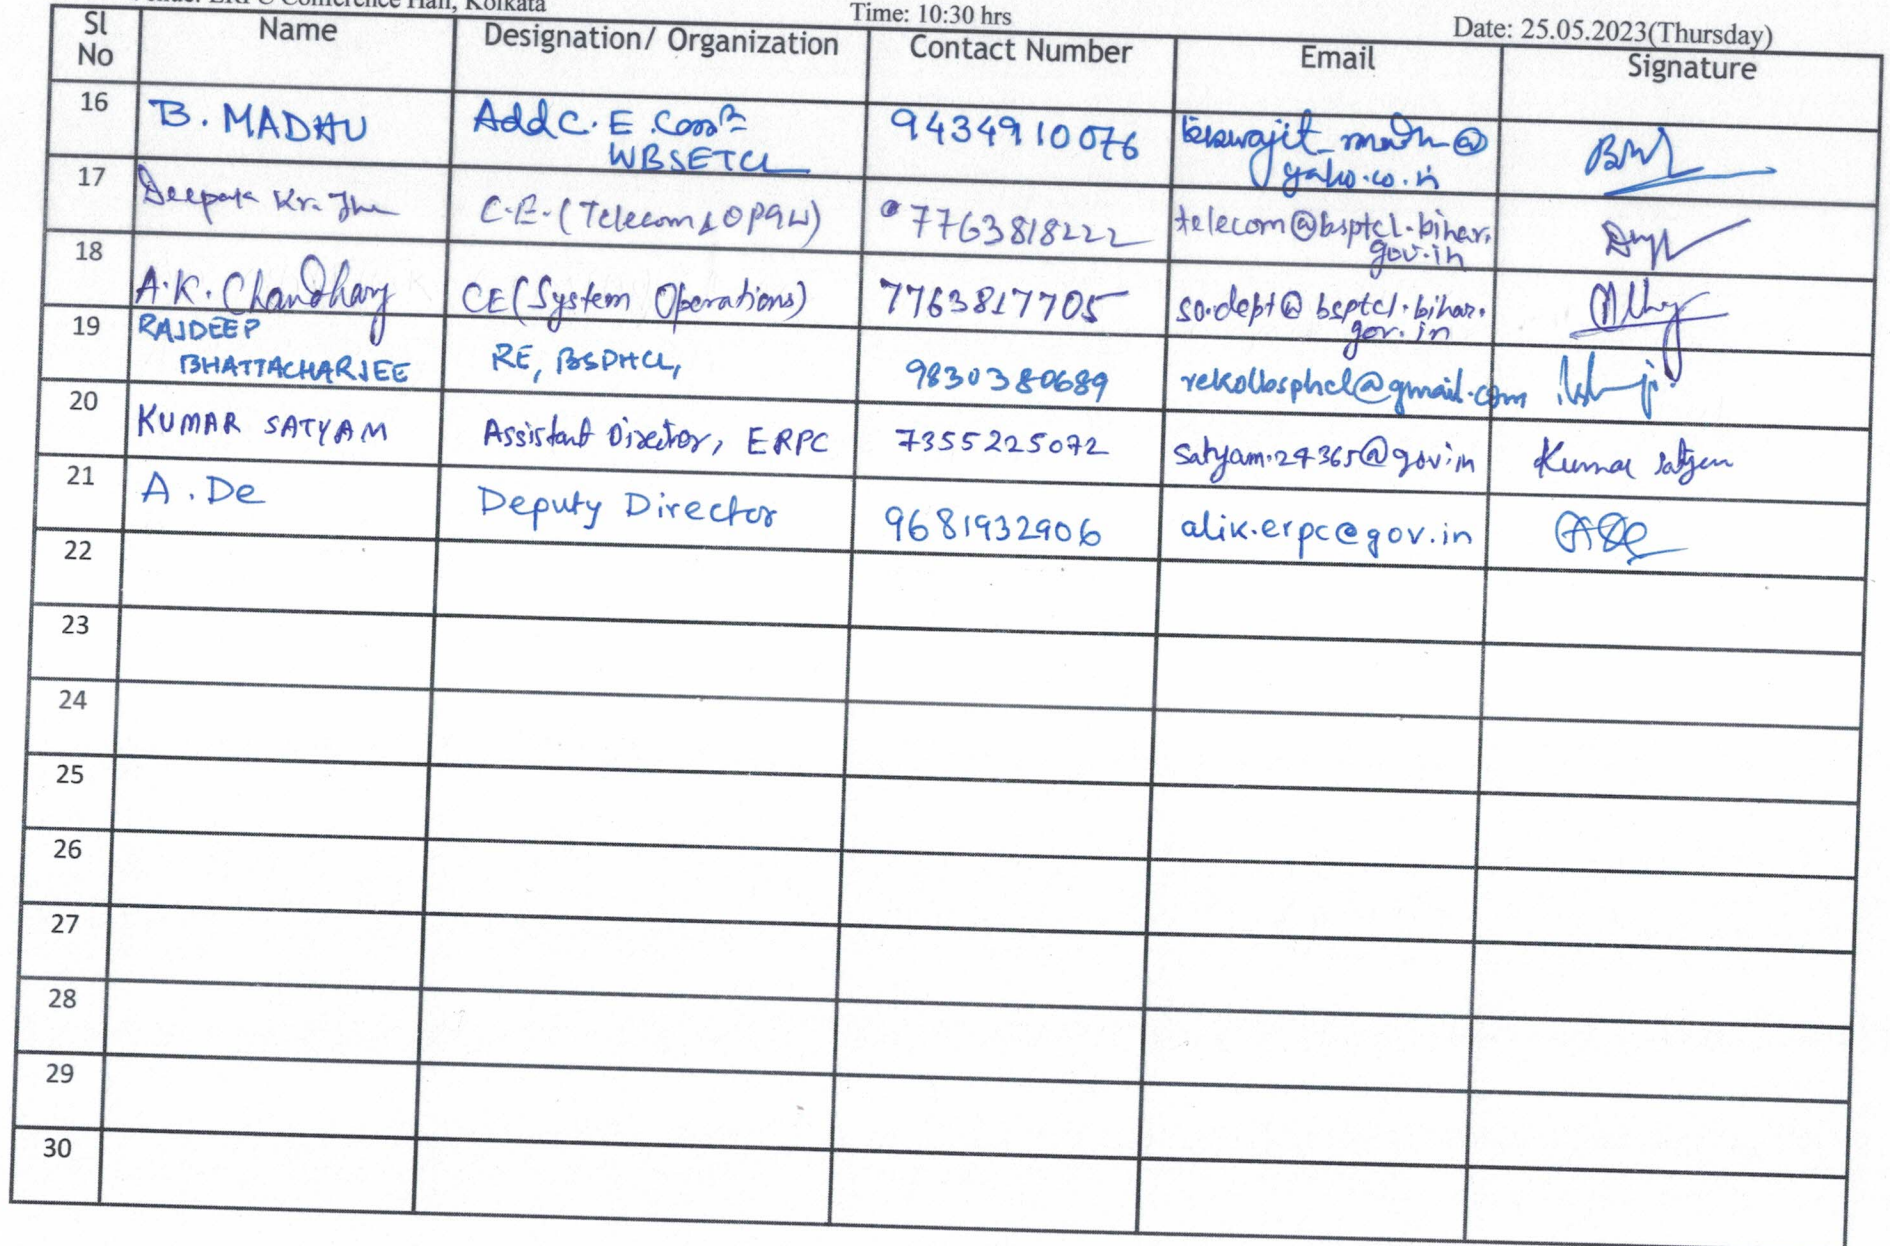 ERPC Conference Hall, Kolkata
Time: 10:30 hrs
Date: 25.05.2023(Thursday)
Sl No Name Designation/ Organization Contact Number Email Signature
16 B. MADHU Addl C.E. WBSETCL 9434910076 @
yaho.co.in
17 Deepak Kr. Jha C.E.(Telecom & OPGW) 7763818222 telecom@bsptcl.bihar.
gov.in
18 A.K. Chaudhary CE(System Operations) 7763817705 so.dept@bsptcl.bihar.
gov.in
19 RAJDEEP
BHATTACHARJEE RE, BSPHCL, 9830380689 rekolbsphcl@gmail.com
20 KUMAR SATYAM Assistant Director, ERPC 7355225072 satyam.24365@gov.in Kumar Satyam
21 A. De Deputy Director 9681932906 alik.erpc@gov.in
22
23
24
25
26
27
28
29
30